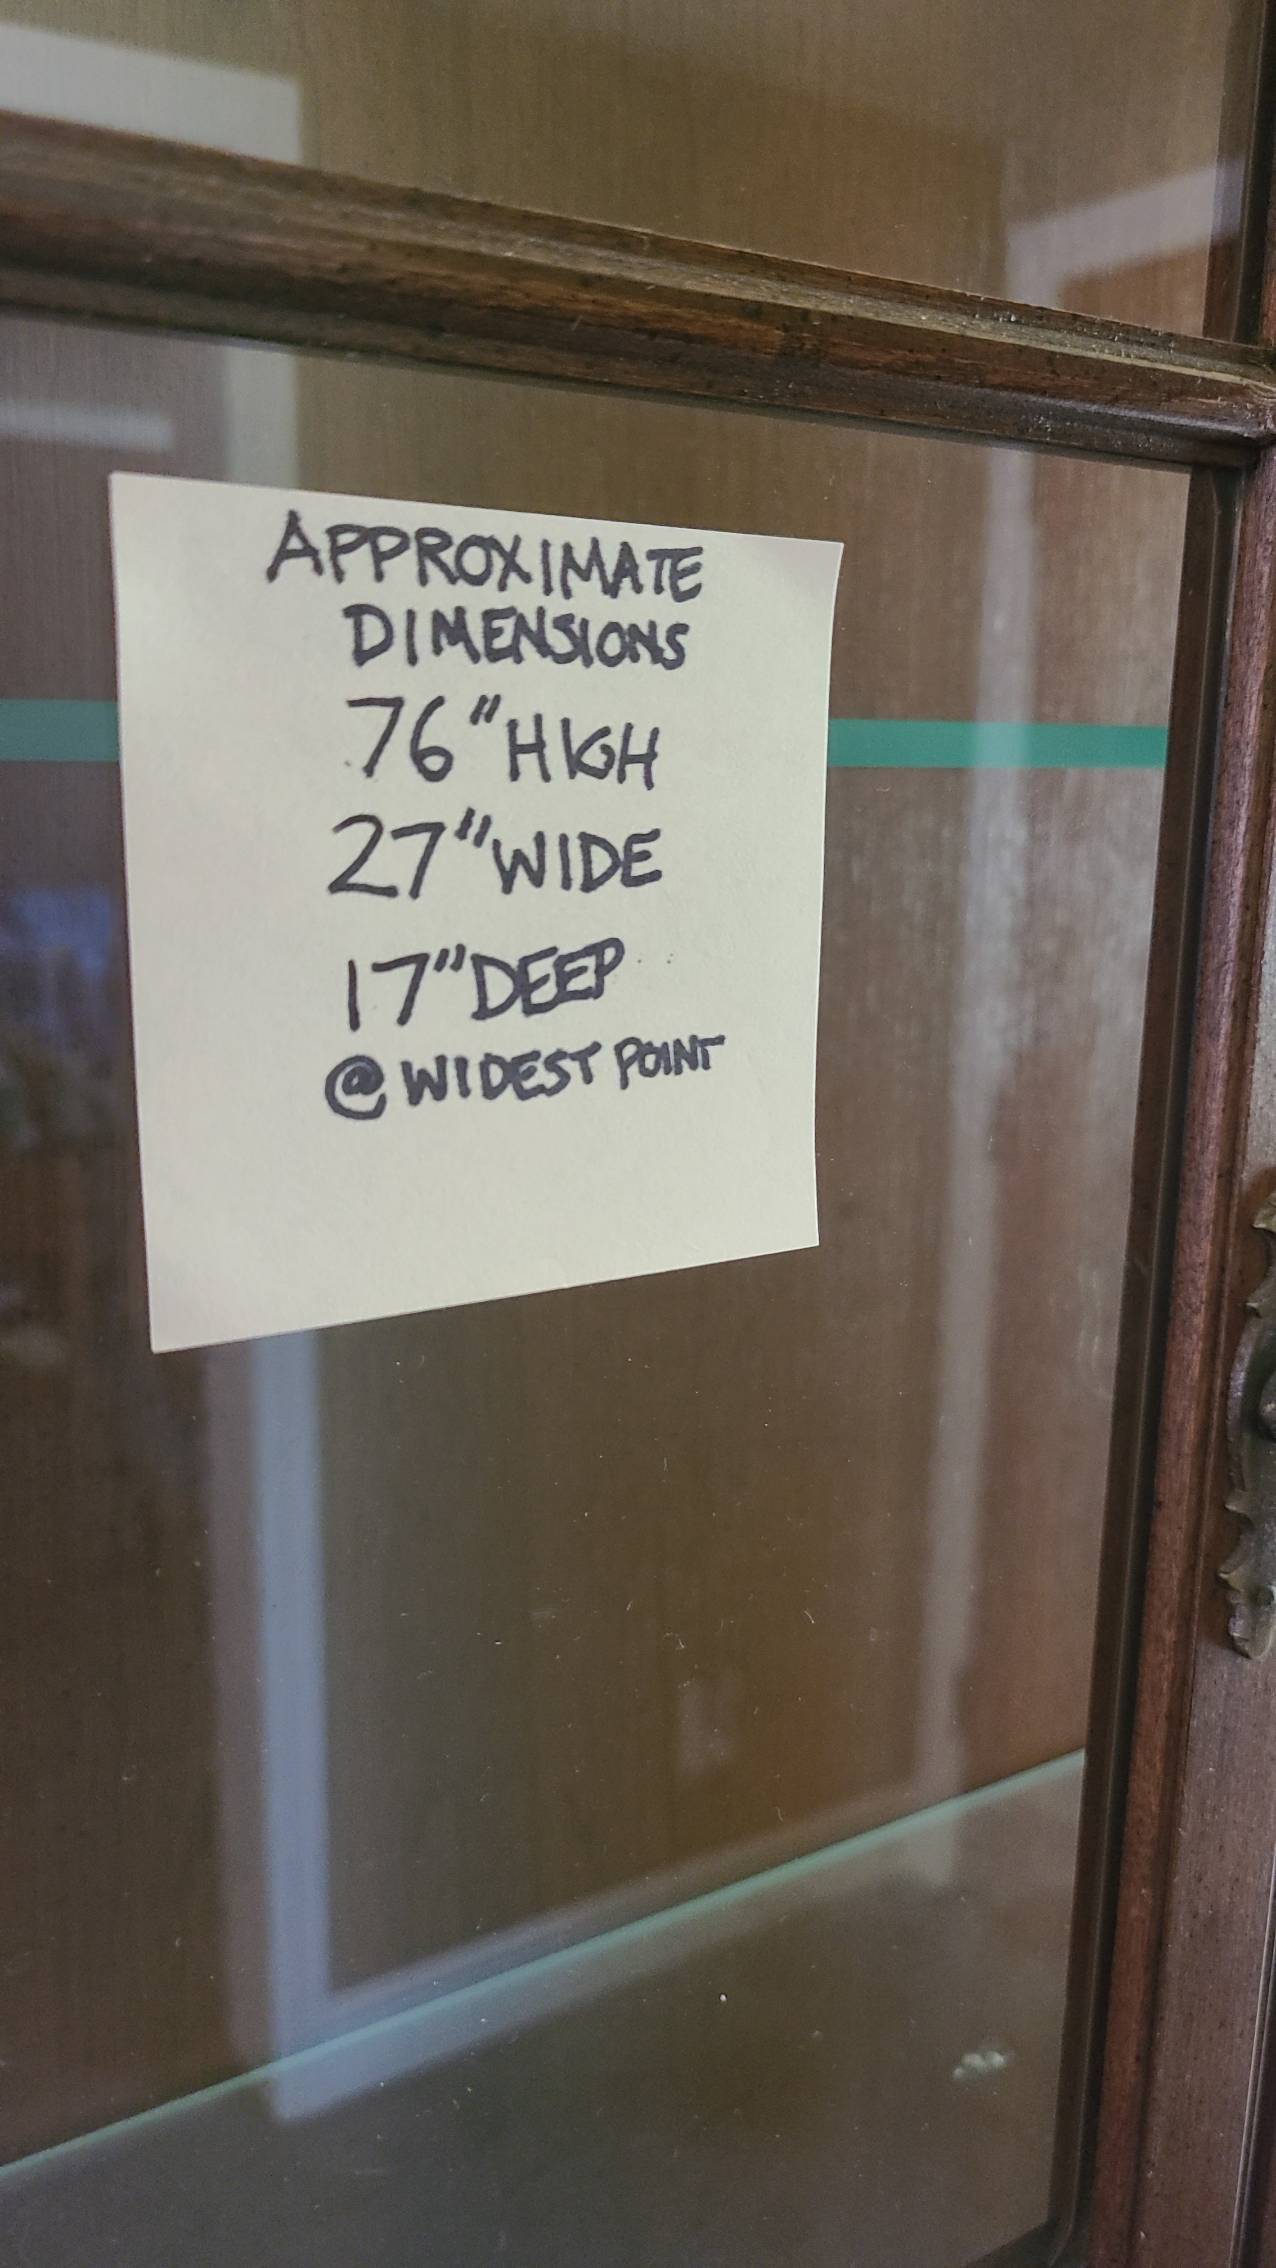 APPROXIMATE
DIMENSIONS
76" HIGH
27" WIDE
17" DEEP
@ WIDEST POINT